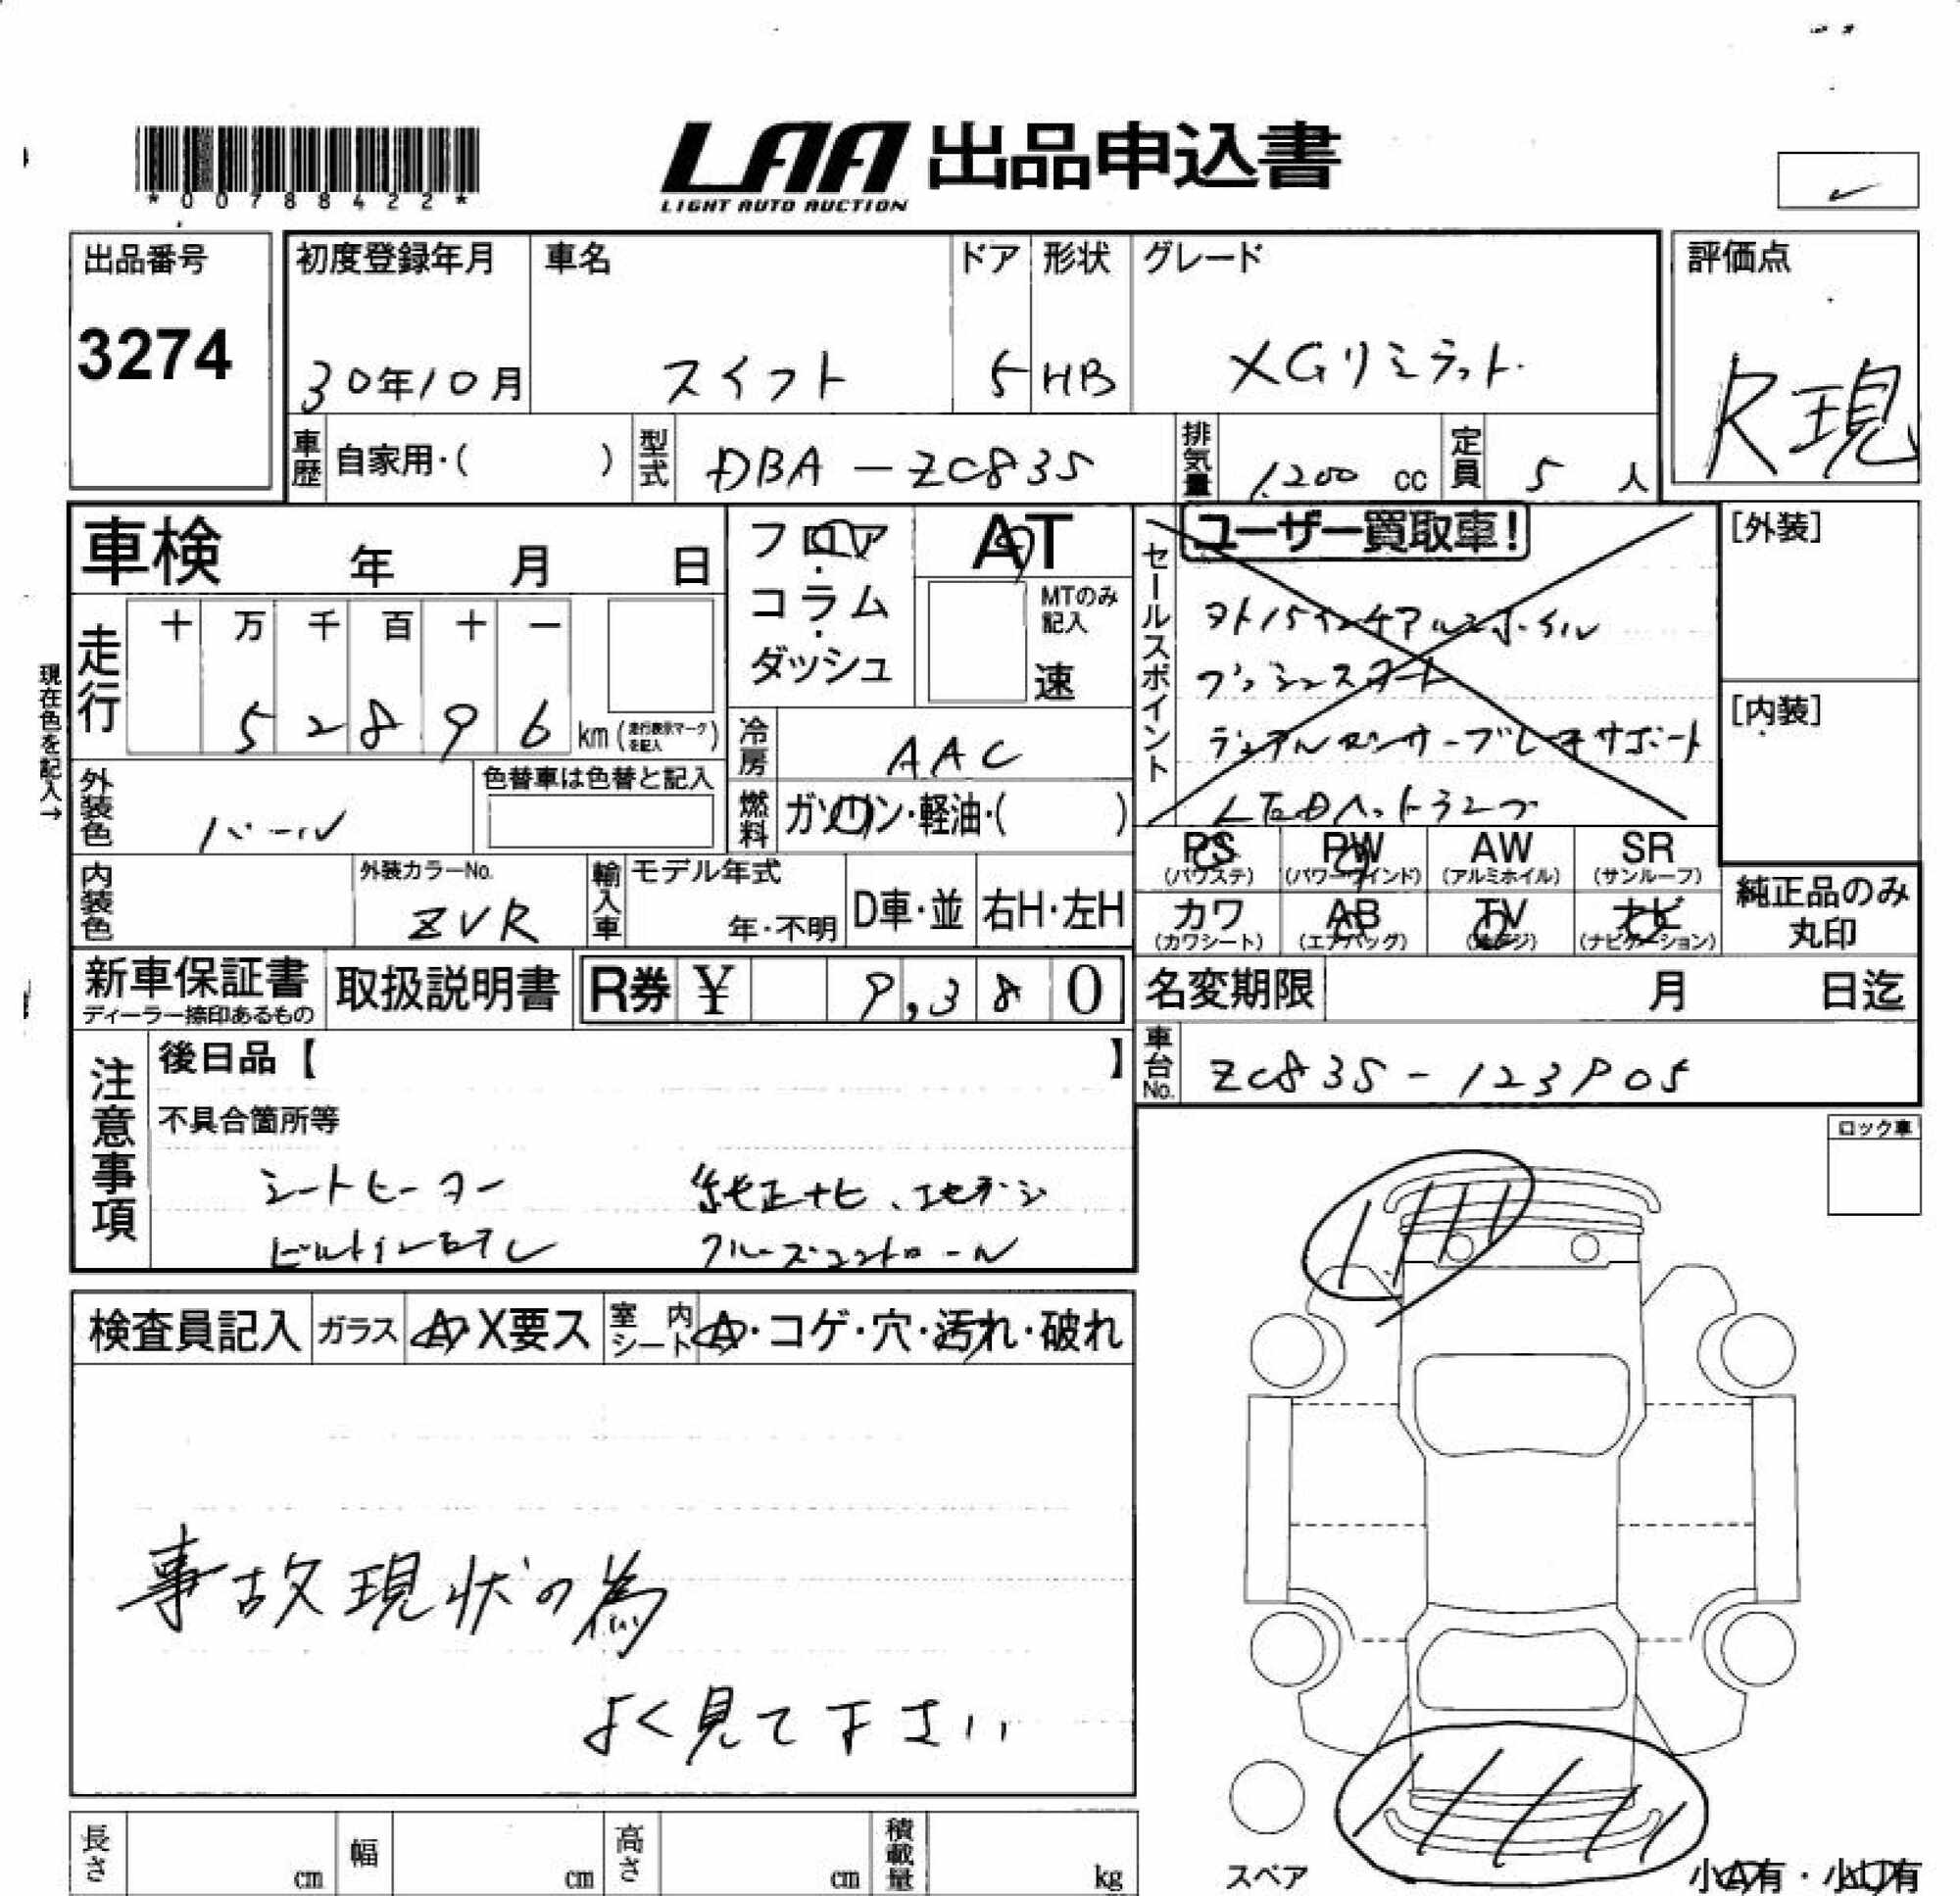 *00788422*
LAA 出品申込書
LIGHT AUTO AUCTION
出品番号
3274
初度登録年月
30年10月
車名
スイフト
ドア
5
形状
HB
グレード
XGリミテット
評価点
R現
車歴
自家用・( )
型式
DBA-ZC83S
排気量
1,200 cc
定員
5 人
車検 年 月 日
フロア・コラム・ダッシュ
AT
MTのみ記入
速
セールスポイント
ユーザー買取車!
ヌキ15インチアルミホイル
プッシュスタート
デュアルセンサーブレーキサポート
LEDヘットランプ
[外装]
[内装]
現在色を記入→
走行
十 万 千 百 十 一
5 2 8 9 6 km(走行表示マークを記入)
冷房
AAC
外装色
パール
色替車は色替と記入
燃料
ガソリン・軽油・( )
PS (パワステ)
PW (パワーウインド)
AW (アルミホイル)
SR (サンルーフ)
カワ (カワシート)
AB (エアバッグ)
TV
ナビ (ナビゲーション)
純正品のみ丸印
内装色
外装カラーNo.
ZVR
輸入車
モデル年式
年・不明
D車・並
右H・左H
新車保証書
ディーラー捺印あるもの
取扱説明書
R券 ¥ 9,380
名変期限 月 日迄
車台No.
ZC83S-123905
注意事項
後日品【 】
不具合箇所等
シートヒーター 純正ナビ、地デジ
ビルトインETC クルーズコントロール
ロック車
検査員記入
ガラス
A・X要ス
室内シート
A・コゲ・穴・汚れ・破れ
事故現状の為
よく見て下さい
長さ cm
幅 cm
高さ cm
積載量 kg
スペア
小A有・小U有